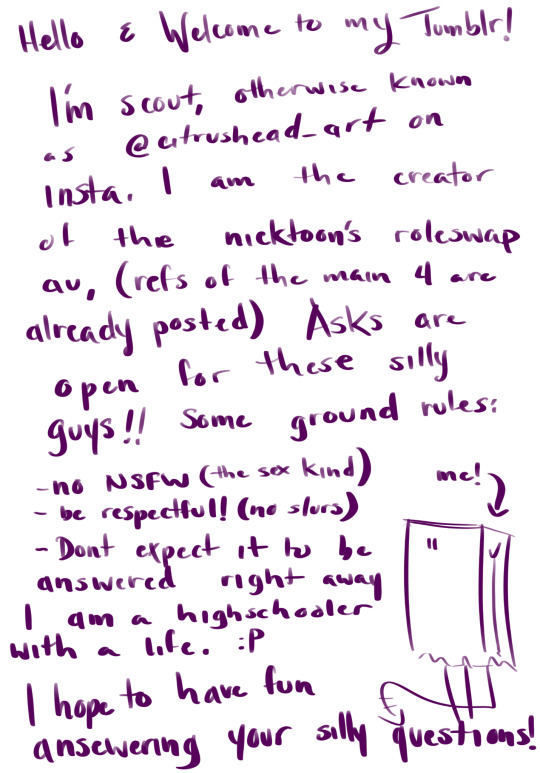 Hello & Welcome to my Tumblr!
I'm scout, otherwise known
as @citrushead_art on
Insta. I am the creator
of the nicktoon's roleswap
au, (refs of the main 4 are
already posted) Asks are
open for these silly
guys!! Some ground rules:
-no NSFW (the sex kind)
- be respectful! (no slurs)
- Dont expect it to be
answered right away
I am a highschooler
with a life. :P
I hope to have fun
ansewering your silly questions!
me!